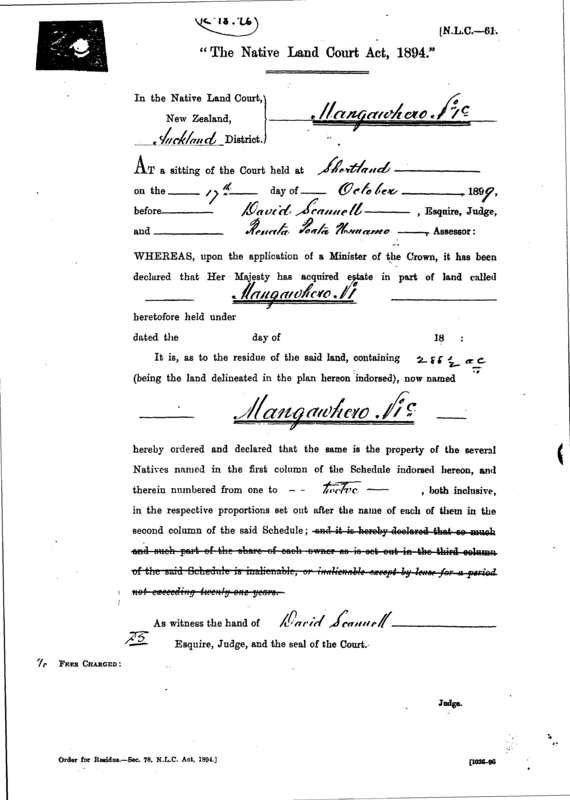 [N.L.C.—61.
"The Native Land Court Act, 1894."
In the Native Land Court,
New Zealand,
Auckland District.
Mangawhero No 1c
AT a sitting of the Court held at Shortland
on the 17th day of October 1899,
before David Scannell, Esquire, Judge,
and Renata, Assessor:
WHEREAS, upon the application of a Minister of the Crown, it has been
declared that Her Majesty has acquired estate in part of land called
Mangawhero No 1
heretofore held under
dated the day of 18 :
It is, as to the residue of the said land, containing ac
(being the land delineated in the plan hereon indorsed), now named
Mangawhero No 1c
hereby ordered and declared that the same is the property of the several
Natives named in the first column of the Schedule indorsed hereon, and
therein numbered from one to -- twelve —, both inclusive,
in the respective proportions set out after the name of each of them in the
second column of the said Schedule; and it is hereby declared that so much
and such part of the share of each owner as is set out in the third column
of the said Schedule is inalienable, or inalienable except by lease for a period
not exceeding twenty-one years.
As witness the hand of David Scannell
Esquire, Judge, and the seal of the Court.
FEES CHARGED:
Judge.
Order for Residue.—Sec. 78, N.L.C. Act, 1894.]
[1036-96